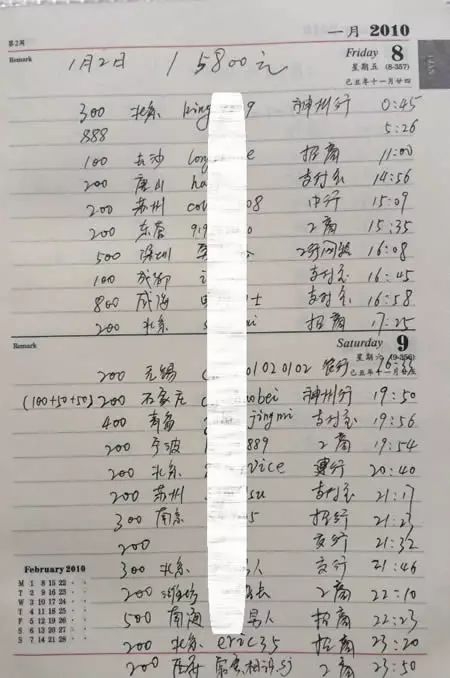 第2周
一月 2010
Remark
Friday 8
星期五 (8-357)
己丑年十一月廿四
1月2日 15800元
300 北京 king 9 神州行 0:45
888 5:26
100 长沙 long e 招商 11:00
200 唐山 ha 支付宝 14:56
200 苏州 co 08 中行 15:09
200 东营 919 0 工商 15:35
500 深圳 16:08
100 成都 支付宝 16:45
800 威海 士 支付宝 16:58
200 北京 s mi 招商 17:25
Remark
Saturday 9
星期六 (9-356)
200 无锡 01020102 农行
(100+50+50) 200 石家庄 bei 神州行 19:50
400 青岛 jingmi 支付宝 19:56
200 宁波 889 工商 19:54
200 北京 vice 建行 20:40
200 苏州 su 支付宝 21:17
300 南京 5 招行 21:23
200 交行 21:32
300 北京 人 交行 21:46
200 潍坊 长 工商 22:10
500 南海 男人 招商 22:23
200 北京 eric35 招商 23:20
200 工商 23:50
February 2010
M 1 8 15 22
T 2 9 16 23
W 3 10 17 24
T 4 11 18 25
F 5 12 19 26
S 6 13 20 27
S 7 14 21 28